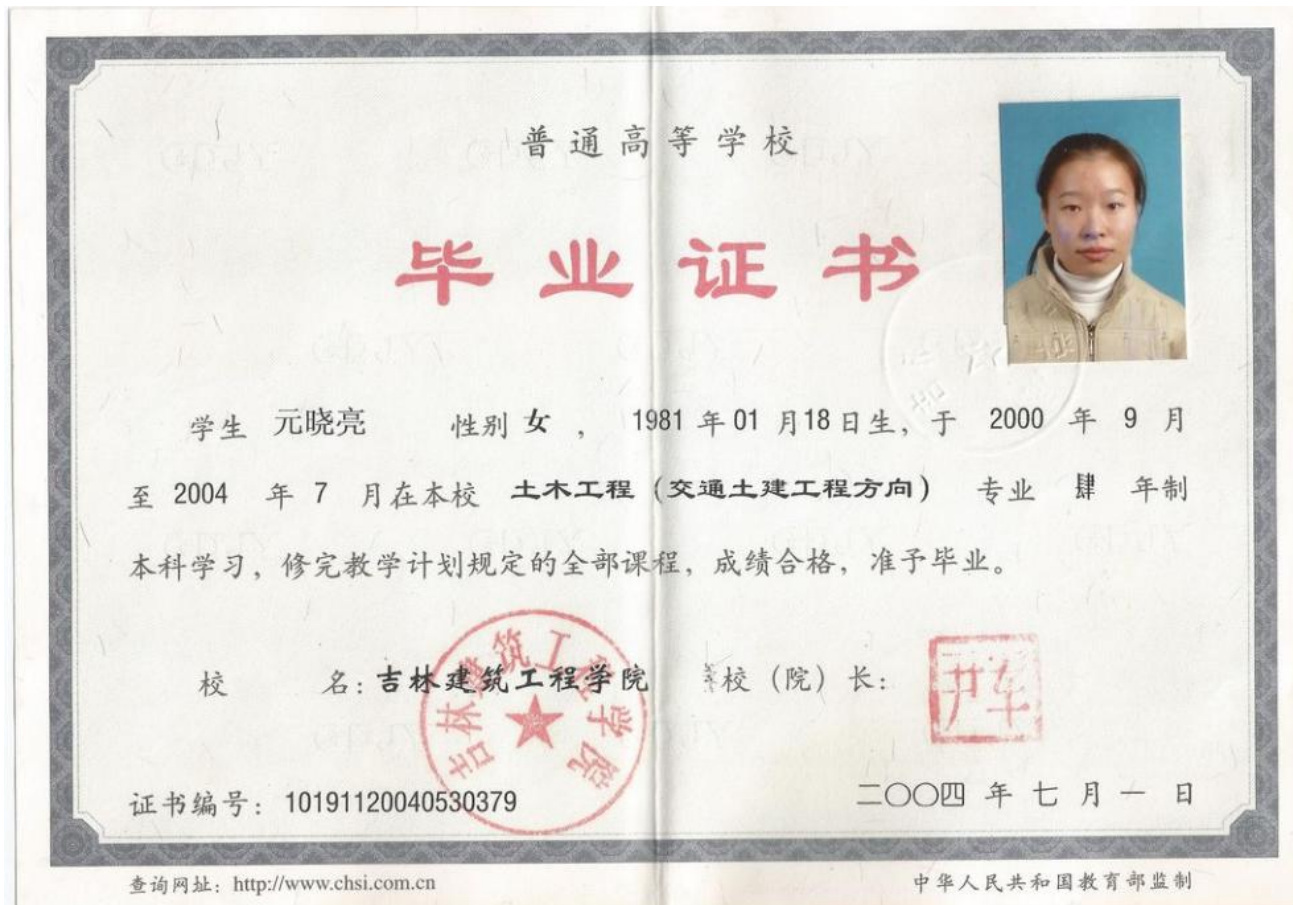 普通高等学校
毕业证书
学生 元晓亮 性别 女 , 1981 年 01 月 18 日生, 于 2000 年 9 月
至 2004 年 7 月在本校 土木工程(交通土建工程方向) 专业 肆 年制
本科学习, 修完教学计划规定的全部课程, 成绩合格, 准予毕业。
校 名: 吉林建筑工程学院 校(院)长:
吉林建筑工程学院
证书编号: 101911200405303​79
二〇〇四 年 七 月 一 日
查询网址: http://www.chsi.com.cn
中华人民共和国教育部监制